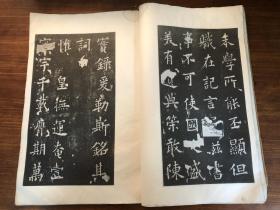 末學所能丕顯但
職在記言茲書
事不可使國盛
美有遺典策敢陳
實錄爰勒斯銘其
詞
惟皇撫運奄壹
寰宇千載膺期萬